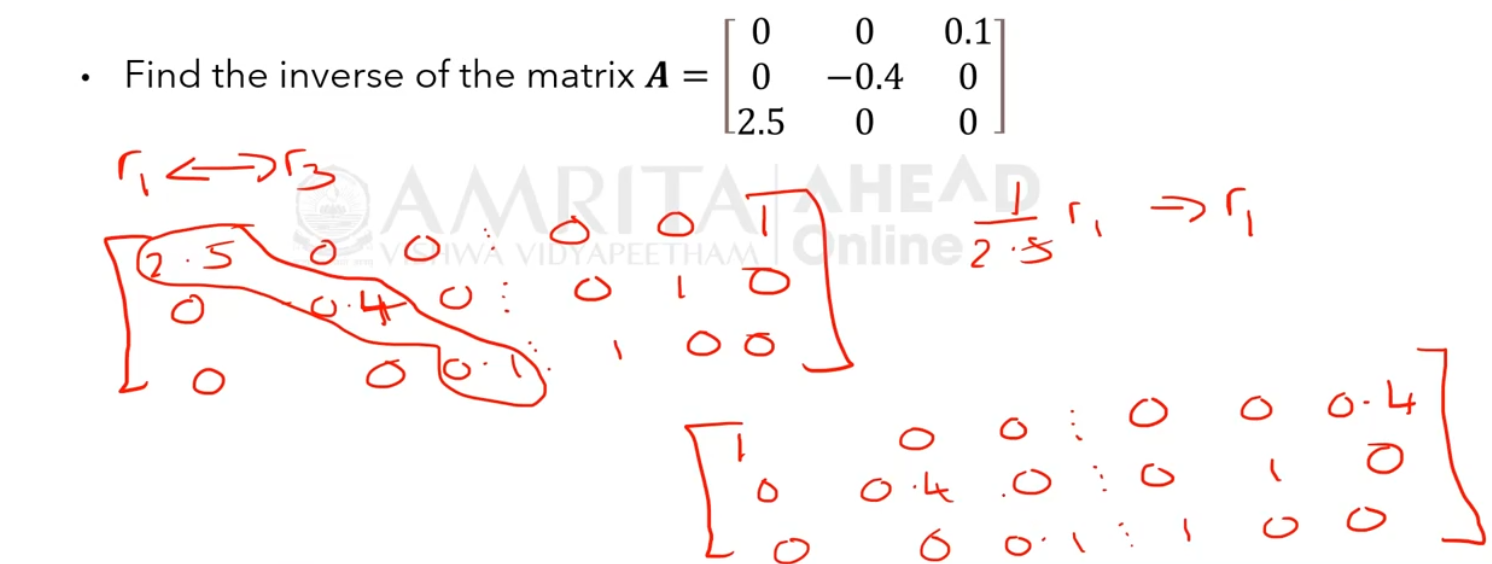 • Find the inverse of the matrix A = [ 0 0 0.1
0 −0.4 0
2.5 0 0 ]
r₁ ↔ r₃
AMRITA AHEAD
VISHWA VIDYAPEETHAM Online
1/2.5 r₁ ⇒ r₁
[ 2.5 0 0 ⋮ 0 0 1
0 -0.4 0 ⋮ 0 1 0
0 0 0.1 ⋮ 1 0 0 ]
[ 1 0 0 ⋮ 0 0 0.4
0 0.4 0 ⋮ 0 1 0
0 0 0.1 ⋮ 1 0 0 ]